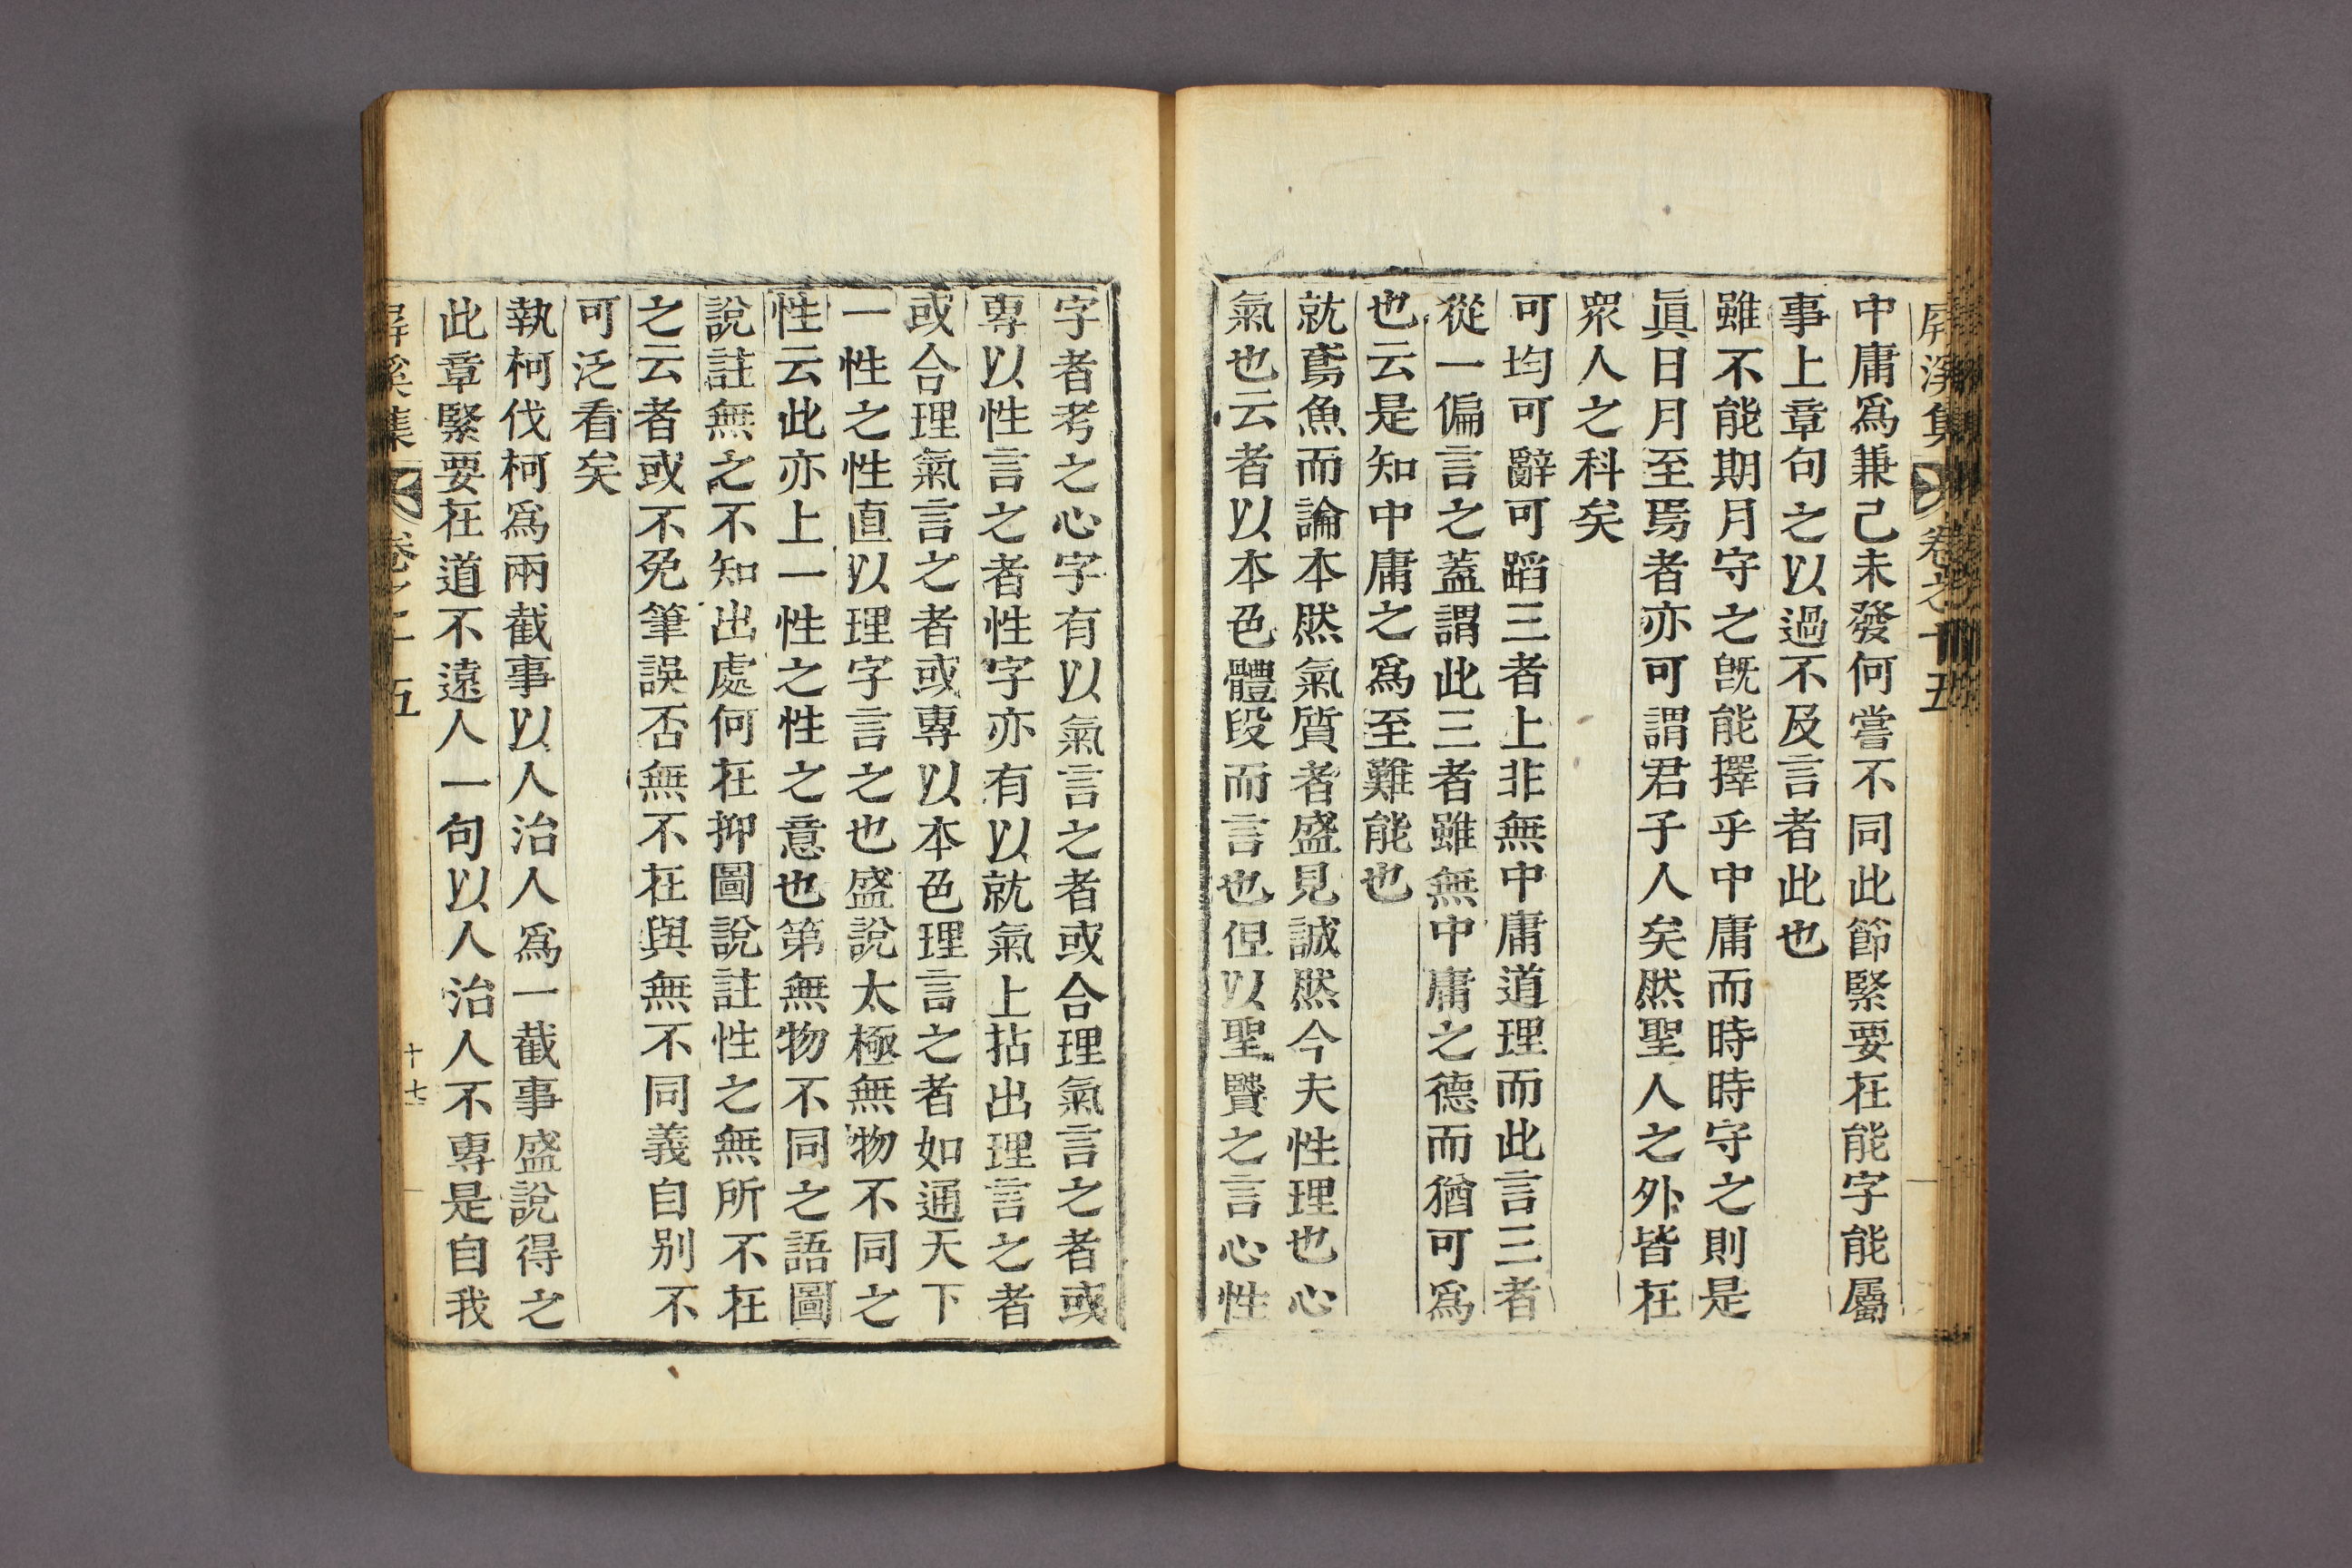 屏溪集 卷之十五
中庸爲兼己未發何嘗不同此節緊要在能字能屬
事上章句之以過不及言者此也
雖不能期月守之旣能擇乎中庸而時時守之則是
眞日月至焉者亦可謂君子人矣然聖人之外皆在
衆人之科矣
可均可辭可蹈三者上非無中庸道理而此言三者
從一偏言之蓋謂此三者雖無中庸之德而猶可爲
也云是知中庸之爲至難能也
就鳶魚而論本然氣質者盛見誠然今夫性理也心
氣也云者以本色體段而言也但以聖賢之言心性
字者考之心字有以氣言之者或合理氣言之者或
專以性言之者性字亦有以就氣上拈出理言之者
或合理氣言之者或專以本色理言之者如通天下
一性之性直以理字言之也盛說太極無物不同之
性云此亦上一性之性之意也第無物不同之語圖
說註無之不知出處何在抑圖說註性之無所不在
之云者或不免筆誤否無不在與無不同義自別不
可泛看矣
執柯伐柯爲兩截事以人治人爲一截事盛說得之
此章緊要在道不遠人一句以人治人不專是自我
屏溪集 卷之十五 十七